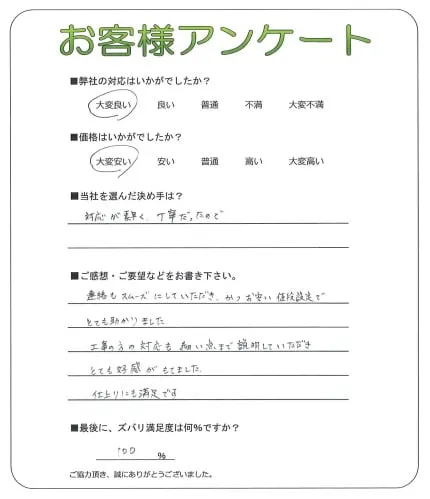 お客様アンケート
■弊社の対応はいかがでしたか？
大変良い 良い 普通 不満 大変不満
■価格はいかがでしたか？
大変安い 安い 普通 高い 大変高い
■当社を選んだ決め手は？
対応が素早く、丁寧だったので
■ご感想・ご要望などをお書き下さい。
連絡もスムーズにしていただき、かつお安い値段設定で
とても助かりました
工事の方の対応も細い点まで説明していただき
とても好感がもてました。
仕上りにも満足です
■最後に、ズバリ満足度は何%ですか？
100 %
ご協力頂き、誠にありがとうございました。